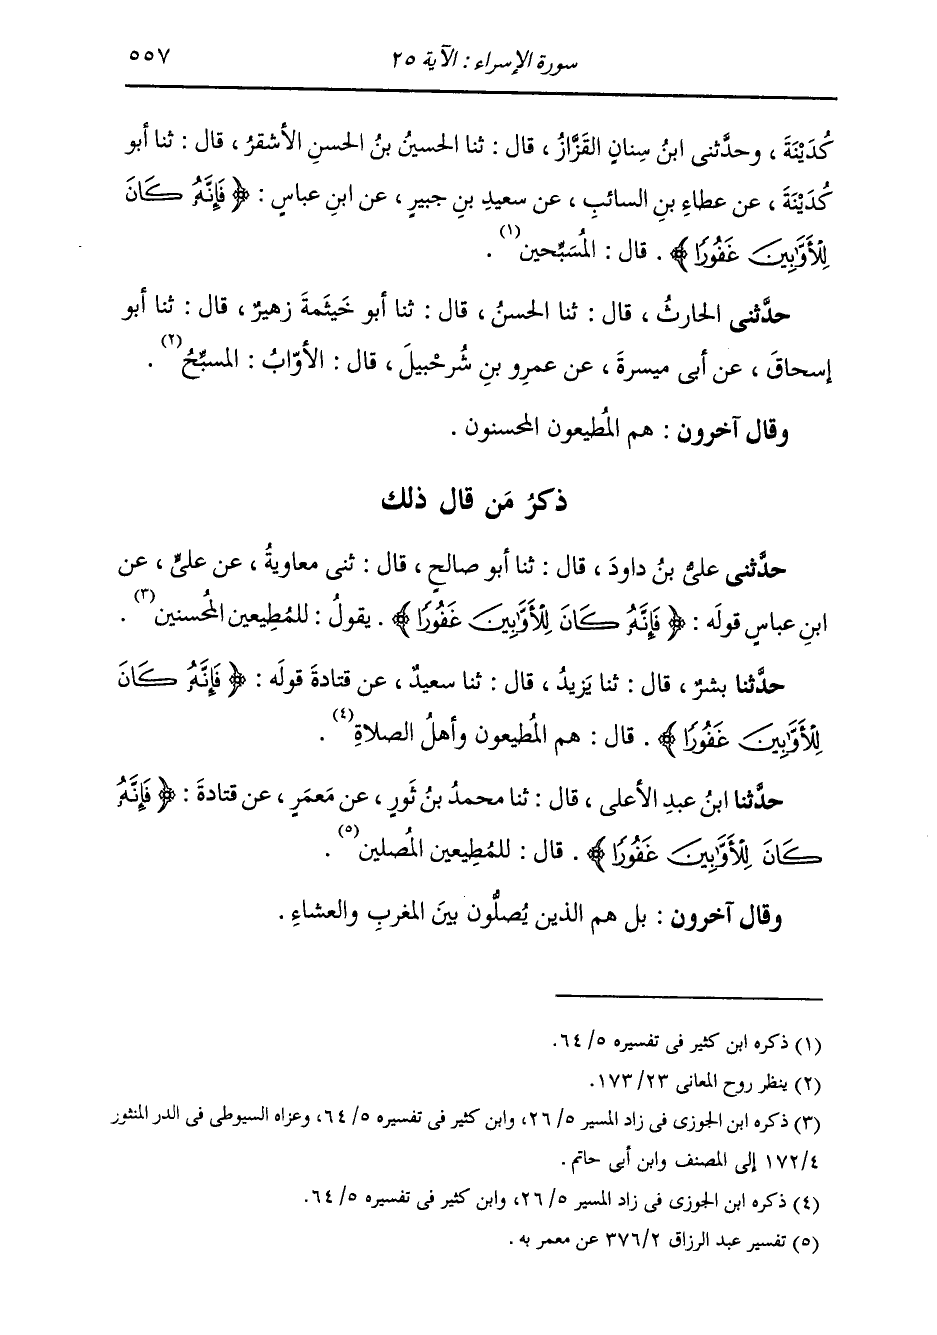 سورة الإسراء : الآية ٢٥ ٥٥٧
كُدَيْنَةَ ، وحدَّثنى ابنُ سِنانٍ القَزَّازُ ، قال : ثنا الحسينُ بنُ الحسنِ الأشقرُ ، قال : ثنا أبو
كُدَيْنَةَ ، عن عطاءِ بنِ السائبِ ، عن سعيدِ بنِ جبيرٍ ، عن ابنِ عباسٍ : ﴿ فَإِنَّهُ كَانَ
لِلْأَوَّبِينَ غَفُورًا ﴾ . قال : المُسَبِّحين(١) .
حدَّثنى الحارثُ ، قال : ثنا الحسنُ ، قال : ثنا أبو خَيثَمةَ زهيرٌ ، قال : ثنا أبو
إسحاقَ ، عن أبى ميسرةَ ، عن عمرِو بنِ شُرحْبيلَ ، قال : الأوّابُ : المسبِّحُ(٢) .
وقال آخرون : هم المُطيعون المحسنون .
ذكرُ مَن قال ذلك
حدَّثنى علىُّ بنُ داودَ ، قال : ثنا أبو صالحٍ ، قال : ثنى معاويةُ ، عن علىٍّ ، عن
ابنِ عباسٍ قولَه : ﴿ فَإِنَّهُ كَانَ لِلْأَوَّبِينَ غَفُورًا ﴾ . يقولُ : للمُطِيعين المُحسنين(٣) .
حدَّثنا بشرٌ ، قال : ثنا يَزيدُ ، قال : ثنا سعيدٌ ، عن قتادةَ قولَه : ﴿ فَإِنَّهُ كَانَ
لِلْأَوَّبِينَ غَفُورًا ﴾ . قال : هم المُطيعون وأهلُ الصلاةِ(٤) .
حدَّثنا ابنُ عبدِ الأعلى ، قال : ثنا محمدُ بنُ ثَورٍ ، عن مَعمَرٍ ، عن قتادةَ : ﴿ فَإِنَّهُ
كَانَ لِلْأَوَّبِينَ غَفُورًا ﴾ . قال : للمُطِيعين المُصلين(٥) .
وقال آخرون : بل هم الذين يُصلُّون بينَ المغربِ والعشاءِ .
(١) ذكره ابن كثير فى تفسيره ٥/ ٦٤.
(٢) ينظر روح المعانى ٢٣/ ١٧٣.
(٣) ذكره ابن الجوزى فى زاد المسير ٥/ ٢٦، وابن كثير فى تفسيره ٥/ ٦٤، وعزاه السيوطى فى الدر المنثور
٤/ ١٧٢ إلى المصنف وابن أبى حاتم .
(٤) ذكره ابن الجوزى فى زاد المسير ٥/ ٢٦، وابن كثير فى تفسيره ٥/ ٦٤.
(٥) تفسير عبد الرزاق ٢/ ٣٧٦ عن معمر به .